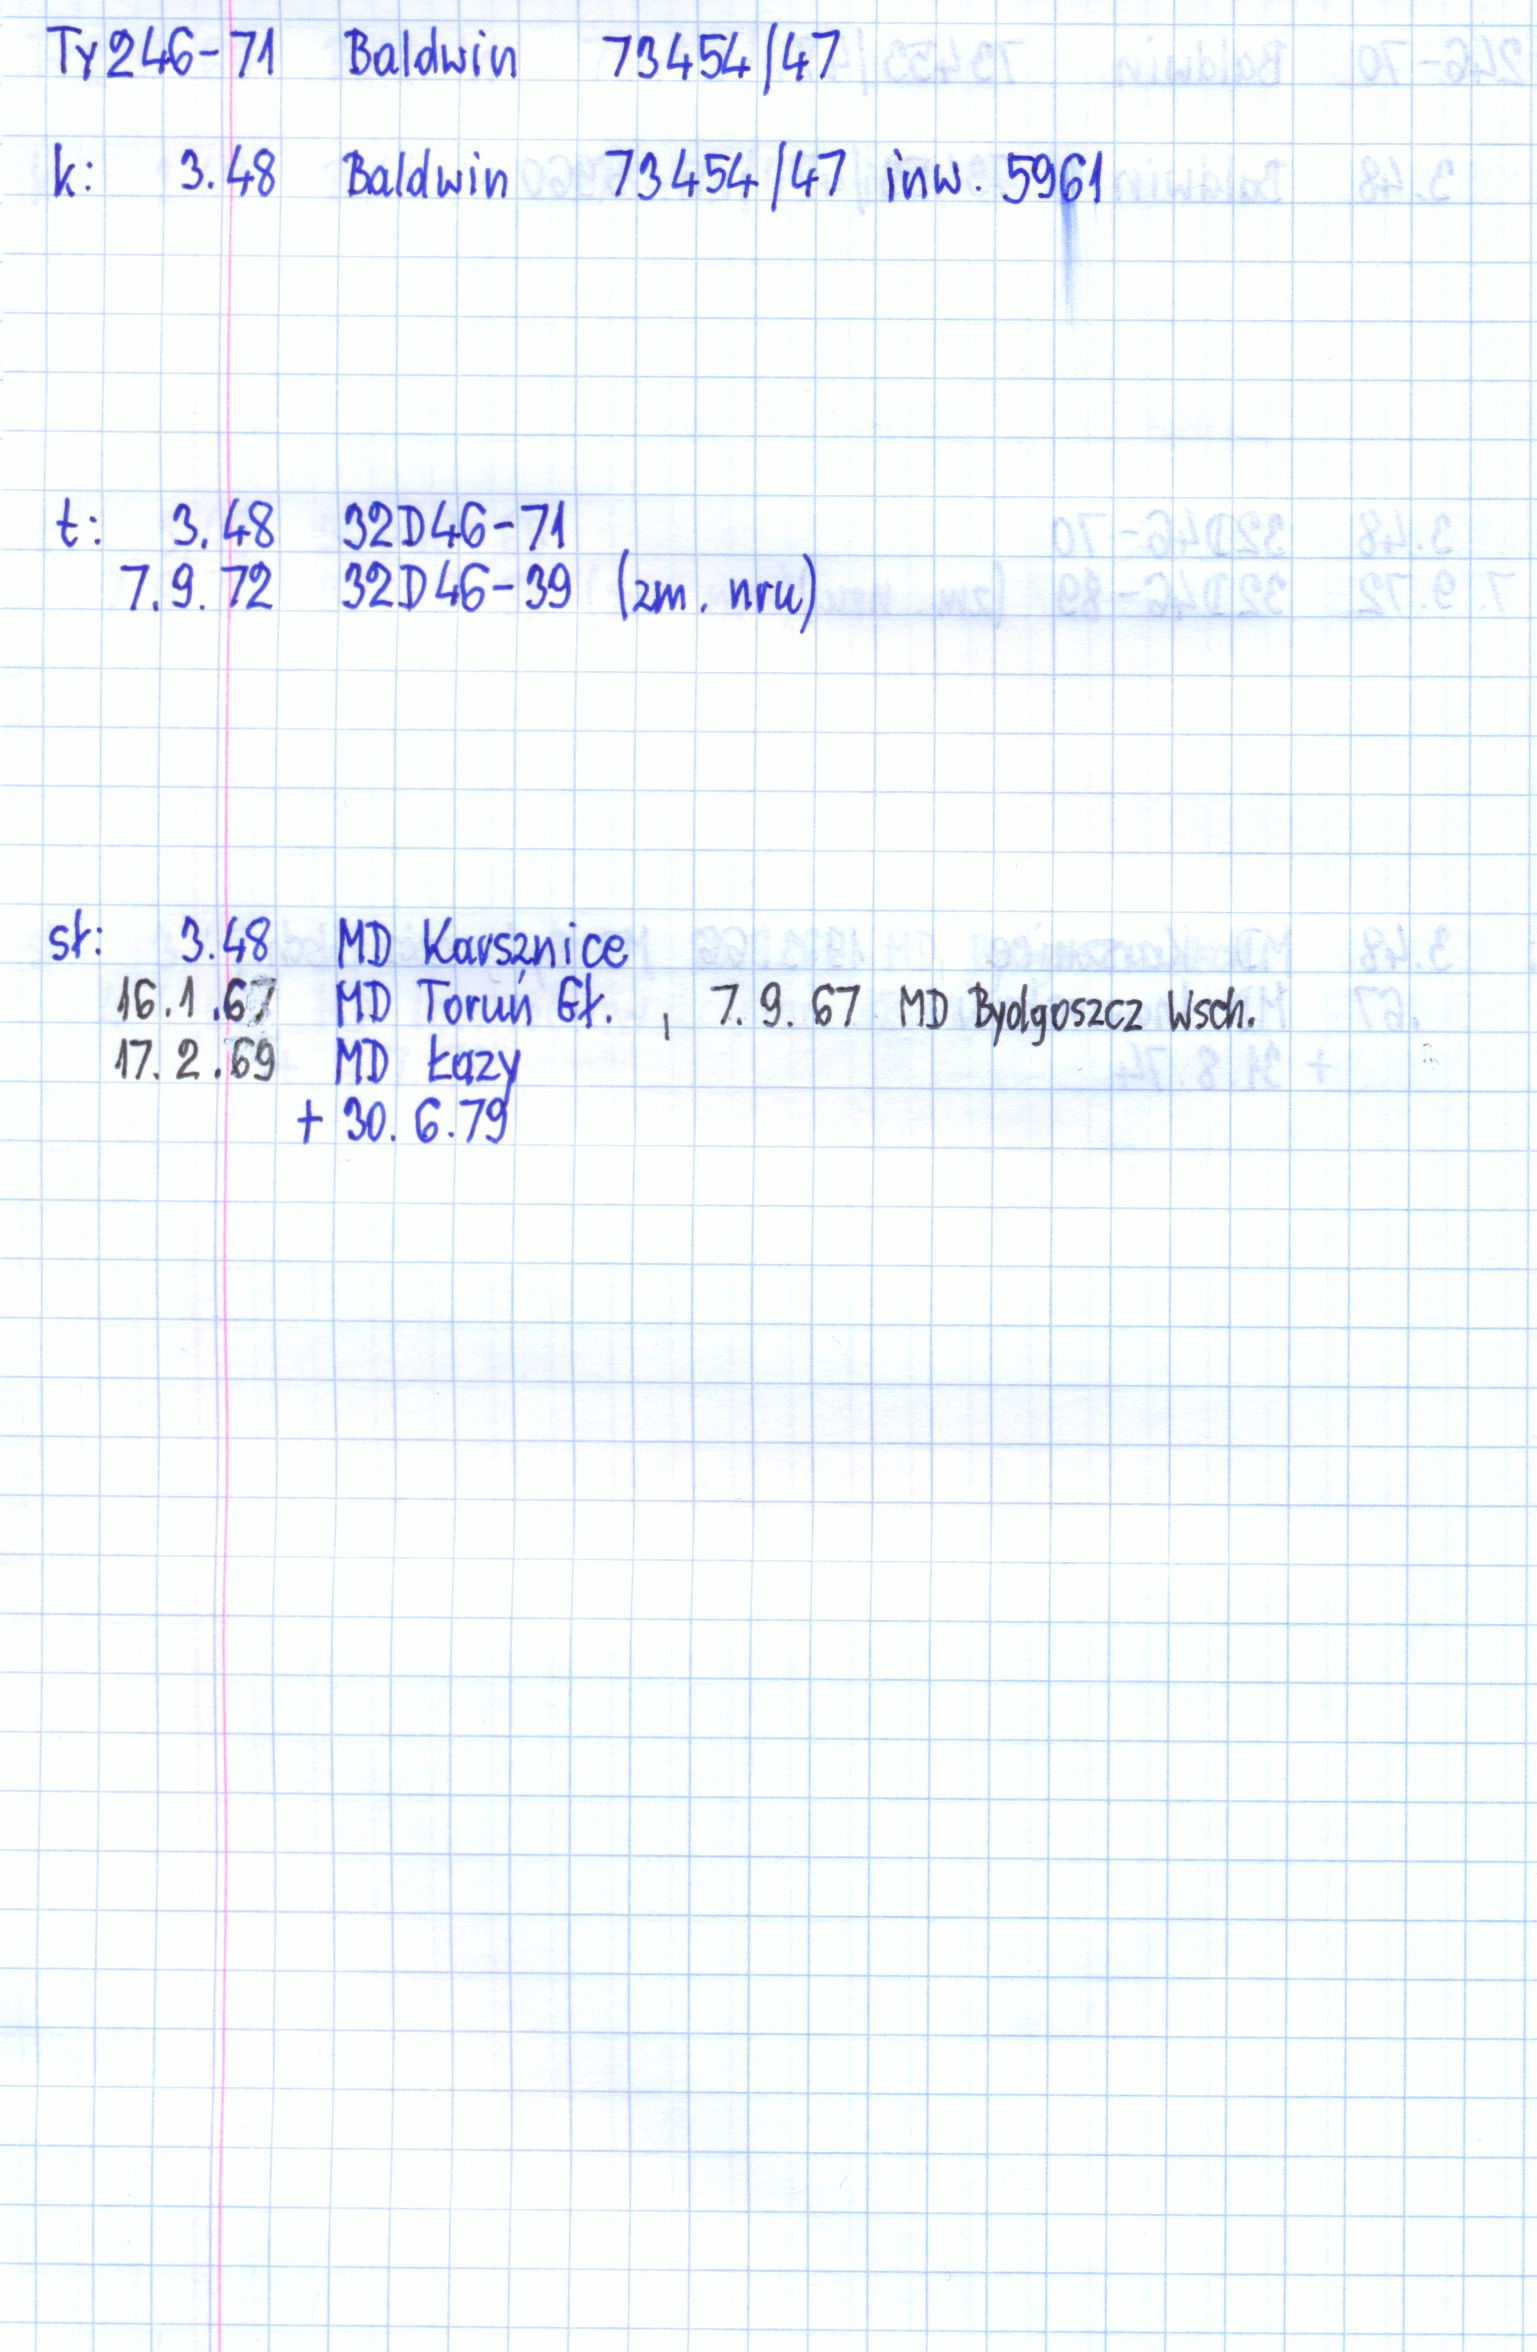 Ty246-71 Baldwin 73454/47
k: 3.48 Baldwin 73454/47 inw. 5961
t: 3.48 32D46-71
7.9.72 32D46-39 (zm. nru)
sł: 3.48 MD Karsznice
16.1.67 MD Toruń Gł. , 7.9.67 MD Bydgoszcz Wsch.
17.2.69 MD Łazy
+ 30.6.79